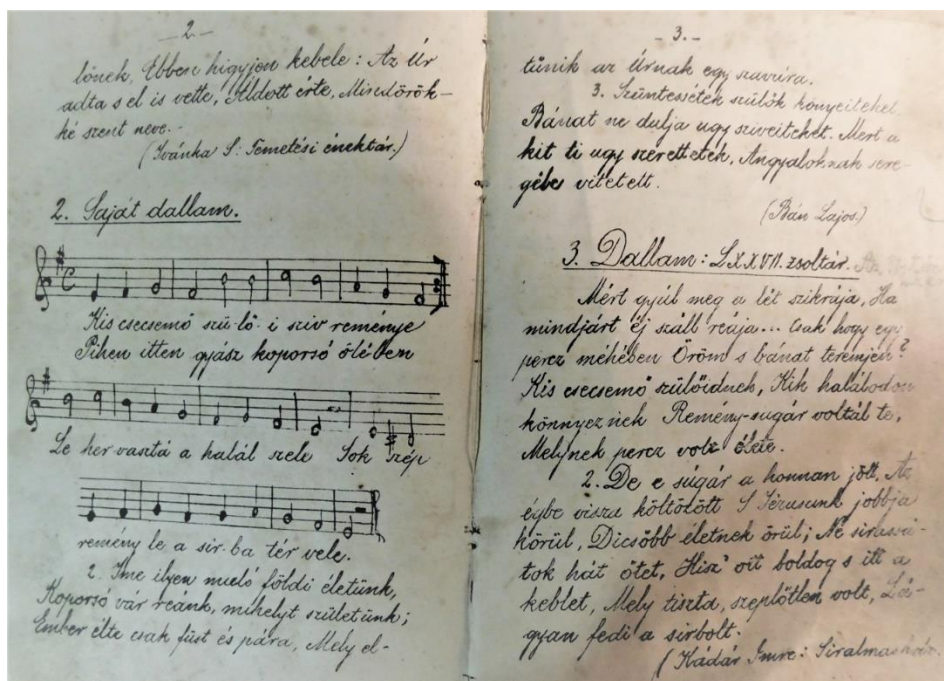 - 2. -
lőnek, Ebben higyjen kebele: Az Úr
adta s el is vette, Áldott érte, Mindörök-
ké szent neve. -
(Ivánka S: Temetési énektár.)
2. Saját dallam.
Kis csecsemő szü-lő-i sziv reménye
Pihen itten gyász koporsó ölében
Le her-vasztá a halál szele Sok szép
remény le a sir-ba tér vele.
2. Ime ilyen muló földi életünk,
Koporsó vár reánk, mihelyt születünk;
Ember élte csak füst és pára, Mely el-
- 3. -
tűnik az Úrnak egy szavára.
3. Szüntessétek szülők könyeiteket.
Bánat ne dulja ugy sziveiteket. Mert a
kit ti ugy szerettetek, Angyaloknak sere-
gébe vitetett.
(Bán Lajos.)
3. Dallam: LXXVII. zsoltár.
Mért gyúl meg a lét szikrája, Ha
mindjárt éj száll reája... Csak hogy egy
percz méhében Öröm s bánat teremjen?
Kis csecsemő szülőidnek, Kik halálodon
könnyeznek Remény-sugár voltál te,
Melynek percz volt élete.
2. De e sugár a honnan jött, Az
égbe vissza költözött S Jézusunk jobbja
körül, Dicsőbb életnek örül; Ne sirassá-
tok hát őtet, Hisz' ott boldog s itt a
keblet, Mely tiszta, szeplőtlen volt, Lá-
gyan fedi a sirbolt.
(Kádár Imre: Siralmas